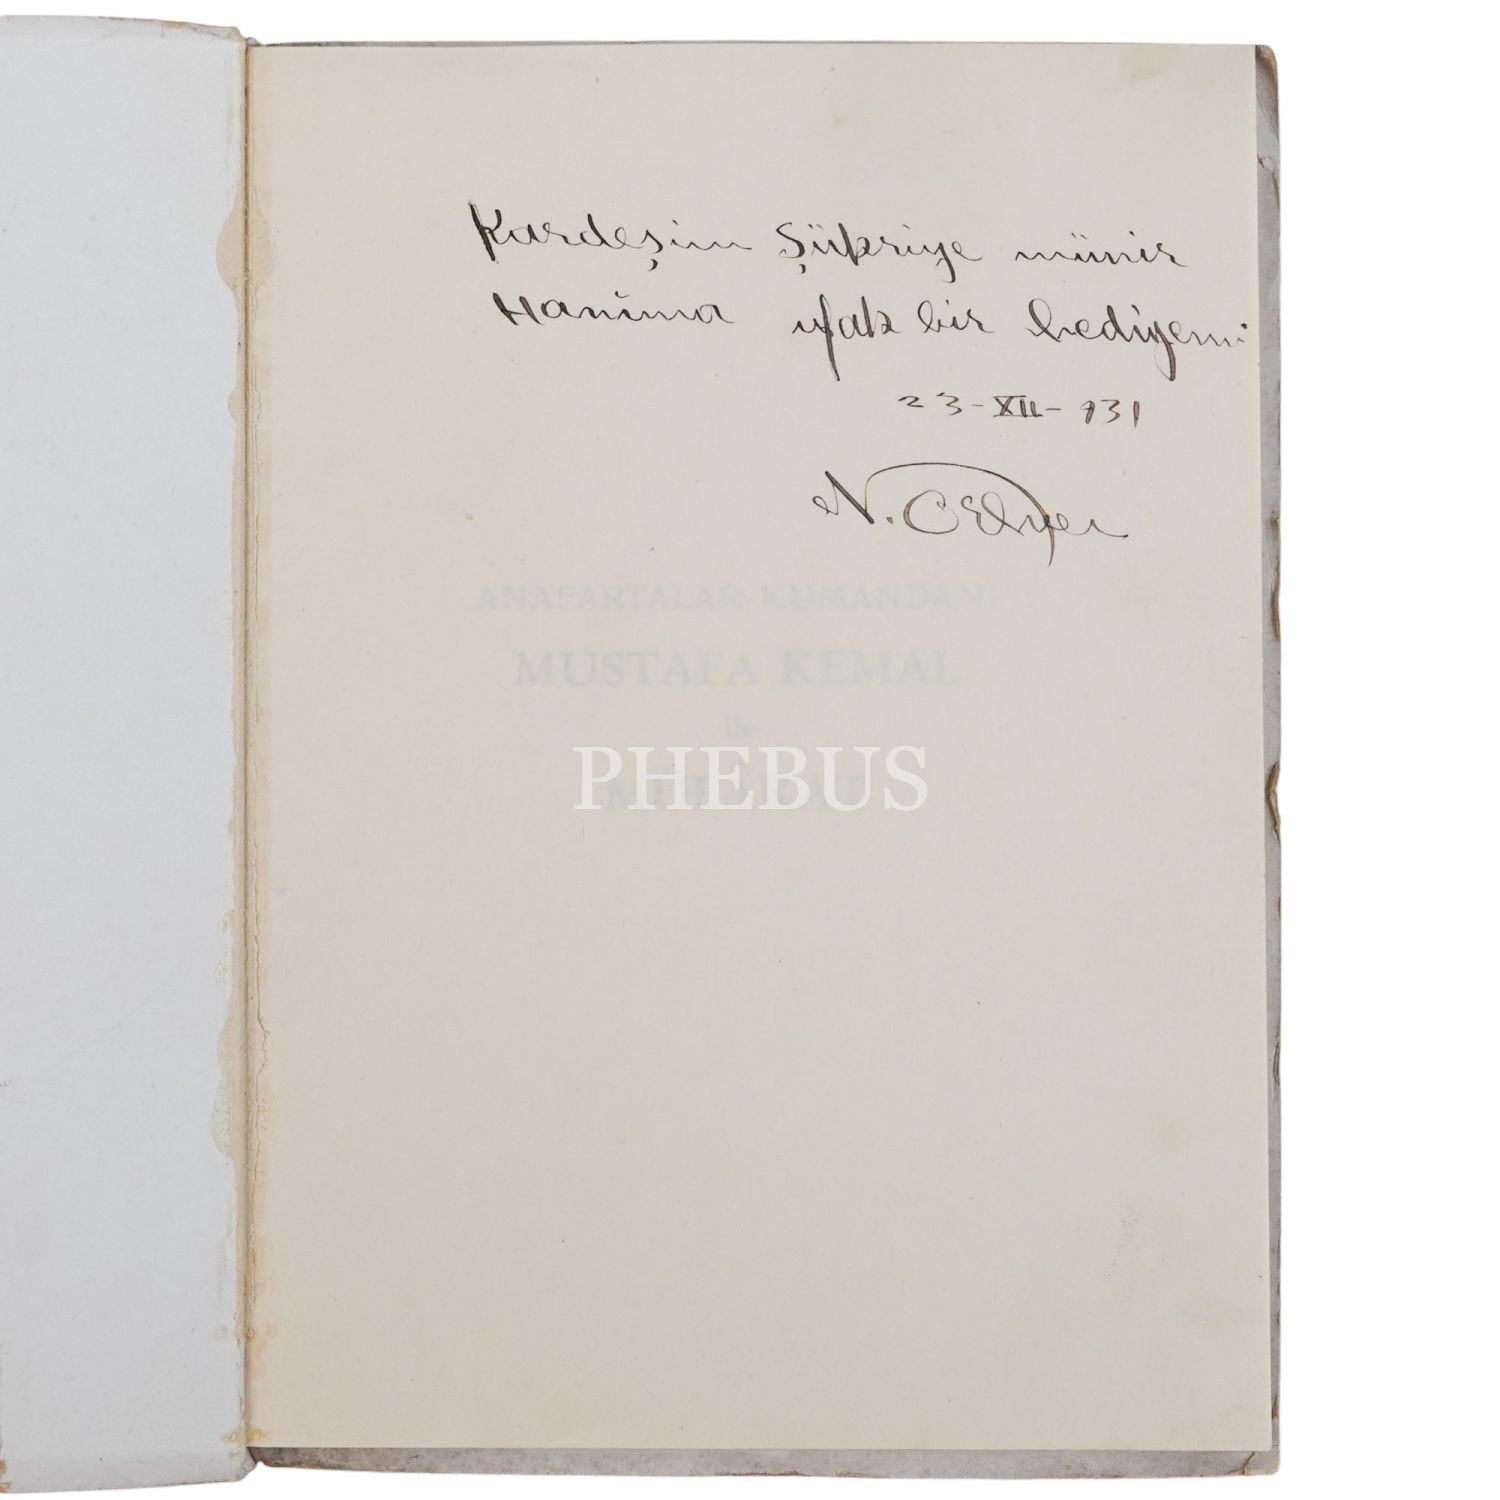 Kardeşim Şükriye münir
Hanıma ufak bir hediyemi
23-XII-931
N.
ANAFARTALAR KUMANDANI
MUSTAFA KEMAL
ile
PHEBUS